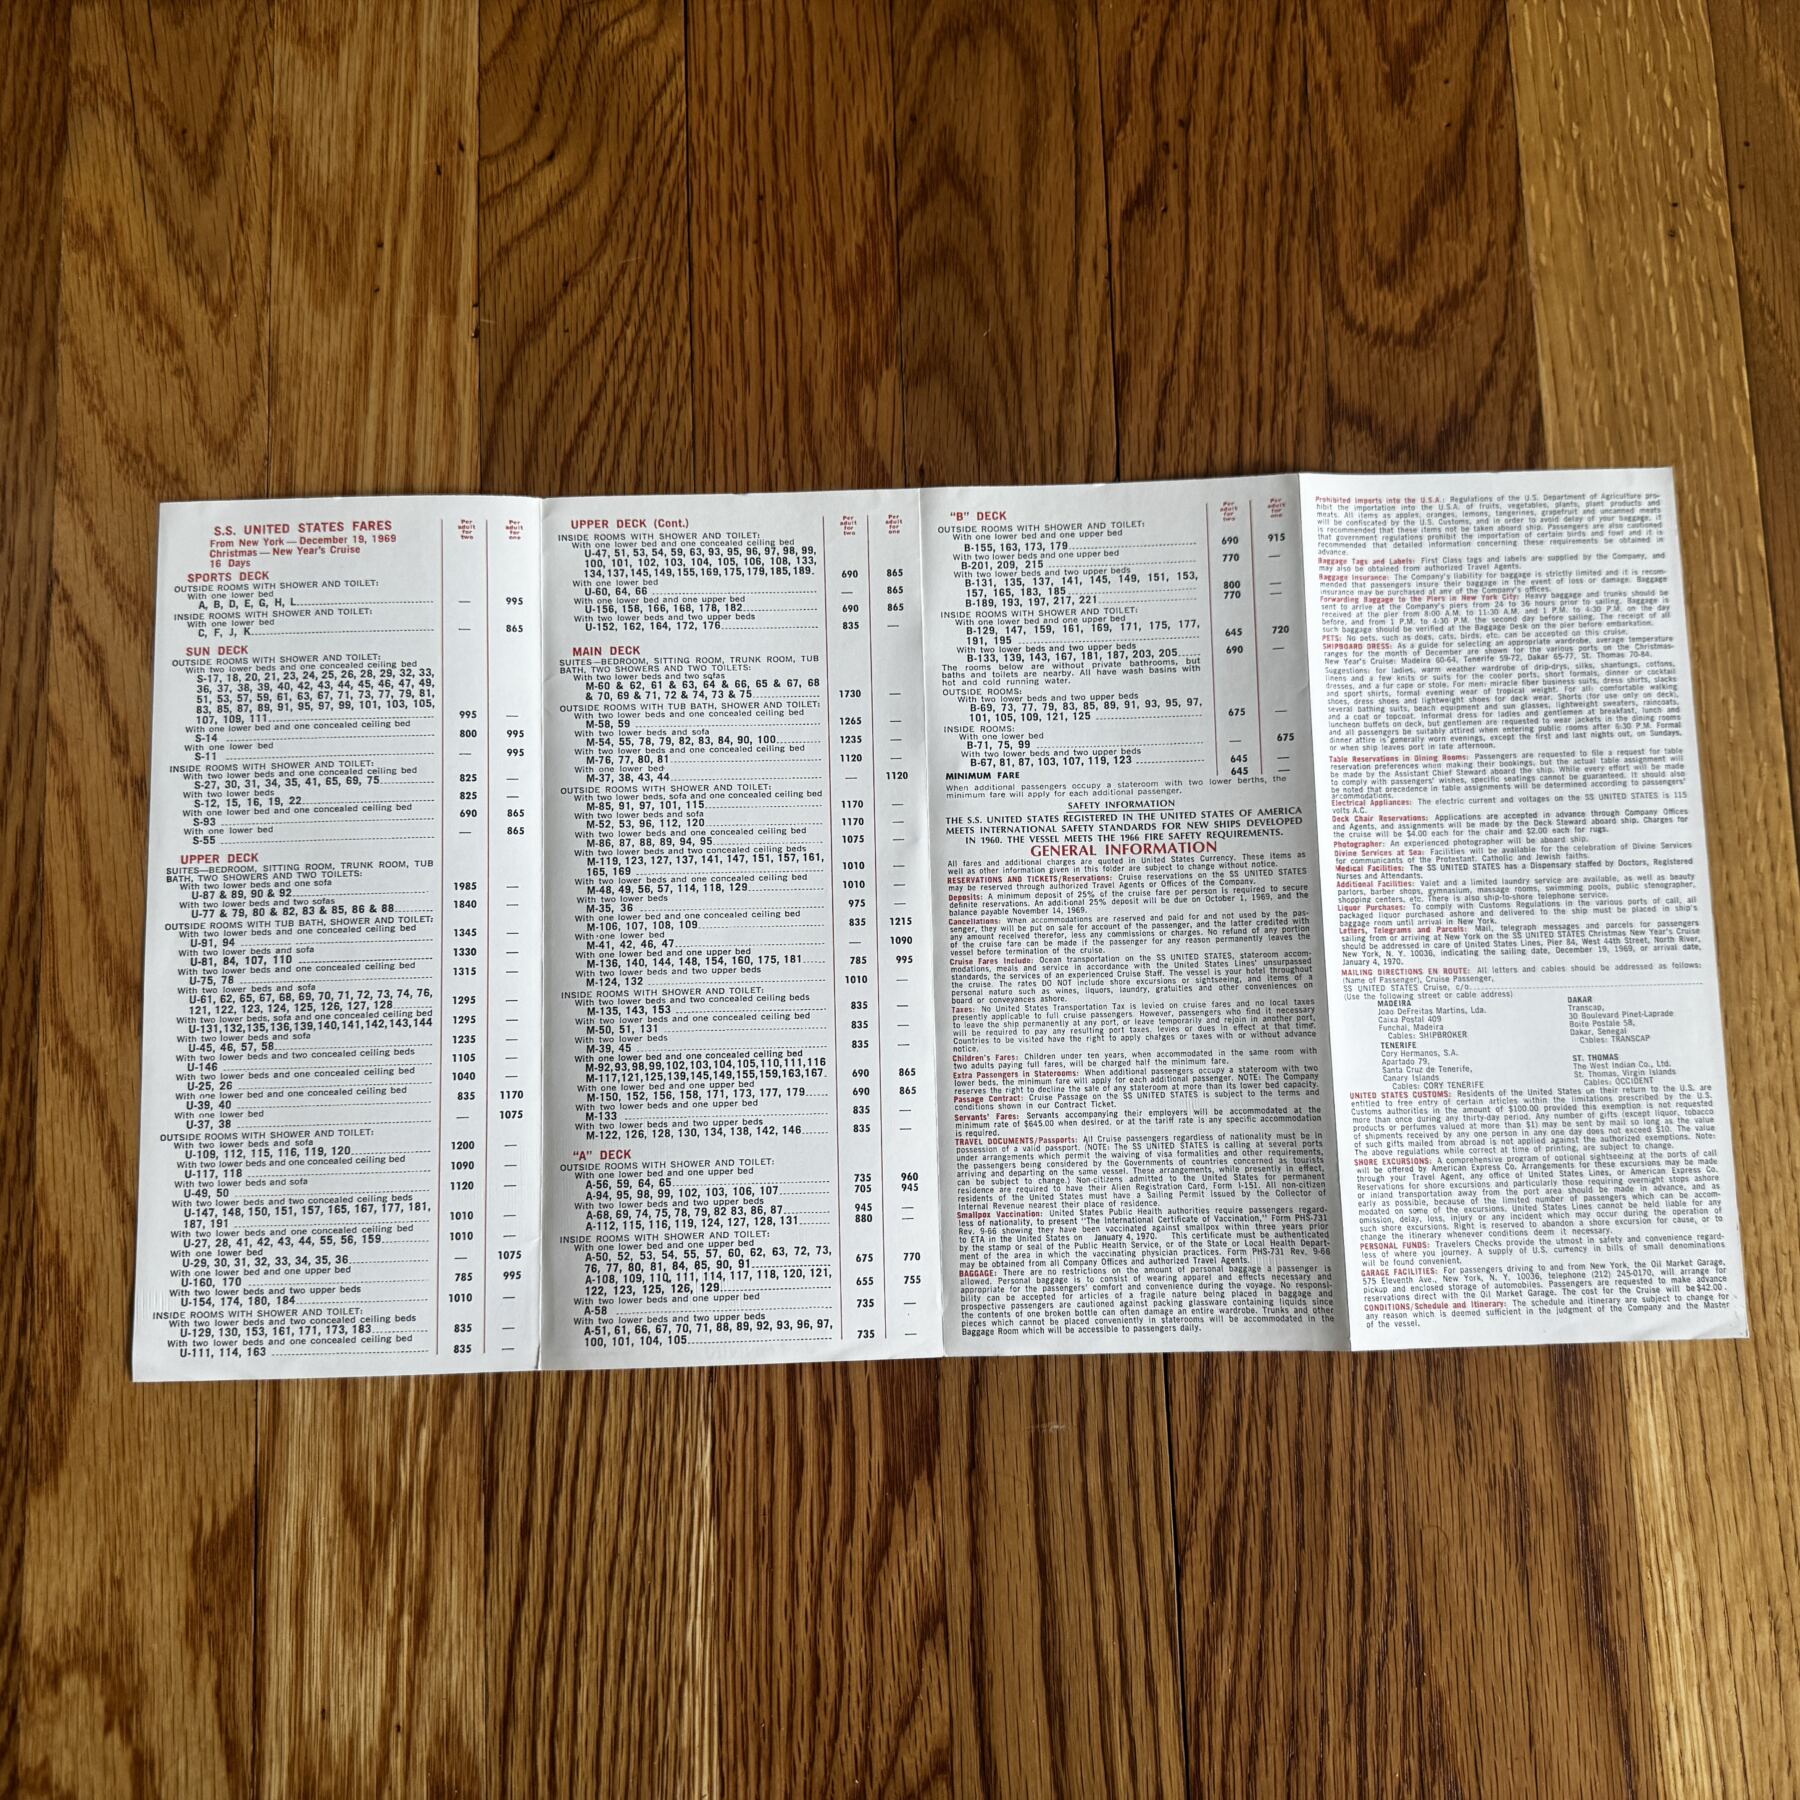 S.S. UNITED STATES FARES
From New York — December 19, 1969
Christmas — New Year's Cruise
16 Days
Per adult for two
Per adult for one
SPORTS DECK
OUTSIDE ROOMS WITH SHOWER AND TOILET:
With one lower bed
A, B, D, E, G, H, L — 995
INSIDE ROOMS WITH SHOWER AND TOILET:
With one lower bed
C, F, J, K — 865
SUN DECK
OUTSIDE ROOMS WITH SHOWER AND TOILET:
With two lower beds and one concealed ceiling bed
S-17, 18, 20, 21, 23, 24, 25, 26, 28, 29, 32, 33,
36, 37, 38, 39, 40, 42, 43, 44, 45, 46, 47, 49,
51, 53, 57, 59, 61, 63, 67, 71, 73, 77, 79, 81,
83, 85, 87, 89, 91, 95, 97, 99, 101, 103, 105,
107, 109, 111 995 —
With one lower bed and one concealed ceiling bed
S-14 800 995
With one lower bed
S-11 — 995
INSIDE ROOMS WITH SHOWER AND TOILET:
With two lower beds and one concealed ceiling bed
S-27, 30, 31, 34, 35, 41, 65, 69, 75 825 —
With two lower beds
S-12, 15, 16, 19, 22 825 —
With one lower bed and one concealed ceiling bed
S-93 690 865
With one lower bed
S-55 — 865
UPPER DECK
SUITES—BEDROOM, SITTING ROOM, TRUNK ROOM, TUB
BATH, TWO SHOWERS AND TWO TOILETS:
With two lower beds and one sofa
U-87 & 89, 90 & 92 1985 —
With two lower beds and two sofas
U-77 & 79, 80 & 82, 83 & 85, 86 & 88 1840 —
OUTSIDE ROOMS WITH TUB BATH, SHOWER AND TOILET:
With two lower beds and one concealed ceiling bed
U-91, 94 1345 —
With two lower beds and sofa
U-81, 84, 107, 110 1330 —
With two lower beds and one concealed ceiling bed
U-75, 78 1315 —
With two lower beds and sofa
U-61, 62, 65, 67, 68, 69, 70, 71, 72, 73, 74, 76,
121, 122, 123, 124, 125, 126, 127, 128 1295 —
With two lower beds, sofa and one concealed ceiling bed
U-131,132,135,136,139,140,141,142,143,144 1295 —
With two lower beds and sofa
U-45, 46, 57, 58 1235 —
With two lower beds and two concealed ceiling beds
U-146 1105 —
With two lower beds and one concealed ceiling bed
U-25, 26 1040 —
With one lower bed and one concealed ceiling bed
U-39, 40 835 1170
With one lower bed
U-37, 38 — 1075
OUTSIDE ROOMS WITH SHOWER AND TOILET:
With two lower beds and sofa
U-109, 112, 115, 116, 119, 120 1200 —
With two lower beds and one concealed ceiling bed
U-117, 118 1090 —
With two lower beds and sofa
U-49, 50 1120 —
With two lower beds and two concealed ceiling beds
U-147, 148, 150, 151, 157, 165, 167, 177, 181,
187, 191 1010 —
With two lower beds and one concealed ceiling bed
U-27, 28, 41, 42, 43, 44, 55, 56, 159 1010 —
With one lower bed
U-29, 30, 31, 32, 33, 34, 35, 36 — 1075
With one lower bed and one upper bed
U-160, 170 785 995
With two lower beds and two upper beds
U-154, 174, 180, 184 1010 —
INSIDE ROOMS WITH SHOWER AND TOILET:
With two lower beds and two concealed ceiling beds
U-129, 130, 153, 161, 171, 173, 183 835 —
With two lower beds and one concealed ceiling bed
U-111, 114, 163 835 —
UPPER DECK (Cont.)
Per adult for two
Per adult for one
INSIDE ROOMS WITH SHOWER AND TOILET:
With one lower bed and one concealed ceiling bed
U-47, 51, 53, 54, 59, 63, 93, 95, 96, 97, 98, 99,
100, 101, 102, 103, 104, 105, 106, 108, 133,
134, 137, 145, 149, 155, 169, 175, 179, 185, 189. 690 865
With one lower bed
U-60, 64, 66 — 865
With one lower bed and one upper bed
U-156, 158, 166, 168, 178, 182 690 865
With two lower beds and two upper beds
U-152, 162, 164, 172, 176 835 —
MAIN DECK
SUITES—BEDROOM, SITTING ROOM, TRUNK ROOM, TUB
BATH, TWO SHOWERS AND TWO TOILETS:
With two lower beds and two sofas
M-60 & 62, 61 & 63, 64 & 66, 65 & 67, 68
& 70, 69 & 71, 72 & 74, 73 & 75 1730 —
OUTSIDE ROOMS WITH TUB BATH, SHOWER AND TOILET:
With two lower beds and one concealed ceiling bed
M-58, 59 1265 —
With two lower beds and sofa
M-54, 55, 78, 79, 82, 83, 84, 90, 100 1235 —
With two lower beds and one concealed ceiling bed
M-76, 77, 80, 81 1120 —
With one lower bed
M-37, 38, 43, 44 — 1120
OUTSIDE ROOMS WITH SHOWER AND TOILET:
With two lower beds, sofa and one concealed ceiling bed
M-85, 91, 97, 101, 115 1170 —
With two lower beds and sofa
M-52, 53, 96, 112, 120 1170 —
With two lower beds and one concealed ceiling bed
M-86, 87, 88, 89, 94, 95 1075 —
With two lower beds and two concealed ceiling beds
M-119, 123, 127, 137, 141, 147, 151, 157, 161,
165, 169 1010 —
With two lower beds and one concealed ceiling bed
M-48, 49, 56, 57, 114, 118, 129 1010 —
With two lower beds
M-35, 36 975 —
With one lower bed and one concealed ceiling bed
M-106, 107, 108, 109 835 1215
With one lower bed
M-41, 42, 46, 47 — 1090
With one lower bed and one upper bed
M-136, 140, 144, 148, 154, 160, 175, 181 785 995
With two lower beds and two upper beds
M-124, 132 1010 —
INSIDE ROOMS WITH SHOWER AND TOILET:
With two lower beds and two concealed ceiling beds
M-135, 143, 153 835 —
With two lower beds and one concealed ceiling bed
M-50, 51, 131 835 —
With two lower beds
M-39, 45 835 —
With one lower bed and one concealed ceiling bed
M-92,93,98,99,102,103,104,105,110,111,116
M-117,121,125,139,145,149,155,159,163,167. 690 865
With one lower bed and one upper bed
M-150, 152, 156, 158, 171, 173, 177, 179 690 865
With two lower beds and one upper bed
M-133 835 —
With two lower beds and two upper beds
M-122, 126, 128, 130, 134, 138, 142, 146 835 —
"A" DECK
OUTSIDE ROOMS WITH SHOWER AND TOILET:
With one lower bed and one upper bed
A-56, 59, 64, 65 735 960
A-94, 95, 98, 99, 102, 103, 106, 107 705 945
With two lower beds and two upper beds
A-68, 69, 74, 75, 78, 79, 82 83, 86, 87 945 —
A-112, 115, 116, 119, 124, 127, 128, 131 880 —
INSIDE ROOMS WITH SHOWER AND TOILET:
With one lower bed and one upper bed
A-50, 52, 53, 54, 55, 57, 60, 62, 63, 72, 73,
76, 77, 80, 81, 84, 85, 90, 91 675 770
A-108, 109, 110, 111, 114, 117, 118, 120, 121,
122, 123, 125, 126, 129 655 755
With two lower beds and one upper bed
A-58 735 —
With two lower beds and two upper beds
A-51, 61, 66, 67, 70, 71, 88, 89, 92, 93, 96, 97,
100, 101, 104, 105 735 —
"B" DECK
Per adult for two
Per adult for one
OUTSIDE ROOMS WITH SHOWER AND TOILET:
With one lower bed and one upper bed
B-155, 163, 173, 179 690 915
With two lower beds and one upper bed
B-201, 209, 215 770 —
With two lower beds and two upper beds
B-131, 135, 137, 141, 145, 149, 151, 153,
157, 165, 183, 185 800 —
B-189, 193, 197, 217, 221 770 —
INSIDE ROOMS WITH SHOWER AND TOILET:
With one lower bed and one upper bed
B-129, 147, 159, 161, 169, 171, 175, 177,
191, 195 645 720
With two lower beds and two upper beds
B-133, 139, 143, 167, 181, 187, 203, 205 690 —
The rooms below are without private bathrooms, but
baths and toilets are nearby. All have wash basins with
hot and cold running water.
OUTSIDE ROOMS:
With two lower beds and two upper beds
B-69, 73, 77, 79, 83, 85, 89, 91, 93, 95, 97,
101, 105, 109, 121, 125 675 —
INSIDE ROOMS:
With one lower bed
B-71, 75, 99 — 675
With two lower beds and two upper beds
B-67, 81, 87, 103, 107, 119, 123 645 —
MINIMUM FARE 645 —
When additional passengers occupy a stateroom with two lower berths, the
minimum fare will apply for each additional passenger.
SAFETY INFORMATION
THE S.S. UNITED STATES REGISTERED IN THE UNITED STATES OF AMERICA
MEETS INTERNATIONAL SAFETY STANDARDS FOR NEW SHIPS DEVELOPED
IN 1960. THE VESSEL MEETS THE 1966 FIRE SAFETY REQUIREMENTS.
GENERAL INFORMATION
All fares and additional charges are quoted in United States Currency. These items as
well as other information given in this folder are subject to change without notice.
RESERVATIONS AND TICKETS/Reservations: Cruise reservations on the SS UNITED STATES
may be reserved through authorized Travel Agents or Offices of the Company.
Deposits: A minimum deposit of 25% of the cruise fare per person is required to secure
definite reservations. An additional 25% deposit will be due on October 1, 1969, and the
balance payable November 14, 1969.
Cancellations: When accommodations are reserved and paid for and not used by the pas-
senger, they will be put on sale for account of the passenger, and the latter credited with
any amount received therefor, less any commissions or charges. No refund of any portion
of the cruise fare can be made if the passenger for any reason permanently leaves the
vessel before termination of the cruise.
Cruise Fares Include: Ocean transportation on the SS UNITED STATES, stateroom accom-
modations, meals and service in accordance with the United States Lines' unsurpassed
standards, the services of an experienced Cruise Staff. The vessel is your hotel throughout
the cruise. The rates DO NOT include shore excursions or sightseeing, and items of a
personal nature such as wines, liquors, laundry, gratuities and other conveniences on
board or conveyances ashore.
Taxes: No United States Transportation Tax is levied on cruise fares and no local taxes
presently applicable to full cruise passengers. However, passengers who find it necessary
to leave the ship permanently at any port, or leave temporarily and rejoin in another port,
will be required to pay any resulting port taxes, levies or dues in effect at that time.
Countries to be visited have the right to apply charges or taxes with or without advance
notice.
Children's Fares: Children under ten years, when accommodated in the same room with
two adults paying full fares, will be charged half the minimum fare.
Extra Passengers in Staterooms: When additional passengers occupy a stateroom with two
lower beds, the minimum fare will apply for each additional passenger. NOTE: The Company
reserves the right to decline the sale of any stateroom at more than its lower bed capacity.
Passage Contract: Cruise Passage on the SS UNITED STATES is subject to the terms and
conditions shown in our Contract Ticket.
Servants' Fares: Servants accompanying their employers will be accommodated at the
minimum rate of $645.00 when desired, or at the tariff rate is any specific accommodation
is required.
TRAVEL DOCUMENTS/Passports: All Cruise passengers regardless of nationality must be in
possession of a valid passport. (NOTE: The SS UNITED STATES is calling at several ports
under arrangements which permit the waiving of visa formalities and other requirements,
the passengers being considered by the Governments of countries concerned as tourists
arriving and departing on the same vessel. These arrangements, while presently in effect,
can be subject to change.) Non-citizens admitted to the United States for permanent
residence are required to have their Alien Registration Card, Form I-151. All non-citizen
residents of the United States must have a Sailing Permit issued by the Collector of
Internal Revenue nearest their place of residence.
Smallpox Vaccination: United States Public Health authorities require passengers regard-
less of nationality, to present "The International Certificate of Vaccination," Form PHS-731
Rev. 9-66 showing they have been vaccinated against smallpox within three years prior
to ETA in the United States on January 4, 1970. This certificate must be authenticated
by the stamp or seal of the Public Health Service, or of the State or Local Health Depart-
ment of the area in which the vaccinating physician practices. Form PHS-731 Rev. 9-66
may be obtained from all Company Offices and authorized Travel Agents.
BAGGAGE: There are no restrictions on the amount of personal baggage a passenger is
allowed. Personal baggage is to consist of wearing apparel and effects necessary and
appropriate for the passengers' comfort and convenience during the voyage. No responsi-
bility can be accepted for articles of a fragile nature being placed in baggage and
prospective passengers are cautioned against packing glassware containing liquids since
the contents of one broken bottle can often damage an entire wardrobe. Trunks and other
pieces which cannot be placed conveniently in staterooms will be accommodated in the
Baggage Room which will be accessible to passengers daily.
Prohibited Imports into the U.S.A.: Regulations of the U.S. Department of Agriculture pro-
hibit the importation into the U.S.A. of fruits, vegetables, plants, plant products and
meats. All items as apples, oranges, lemons, tangerines, grapefruit and uncanned meats
will be confiscated by the U.S. Customs, and in order to avoid delay of your baggage, it
is recommended that these items not be taken aboard ship. Passengers are also cautioned
that government regulations prohibit the importation of certain birds and fowl and it is
recommended that detailed information concerning these requirements be obtained in
advance.
Baggage Tags and Labels: First Class tags and labels are supplied by the Company, and
may also be obtained from authorized Travel Agents.
Baggage Insurance: The Company's liability for baggage is strictly limited and it is recom-
mended that passengers insure their baggage in the event of loss or damage. Baggage
insurance may be purchased at any of the Company's offices.
Forwarding Baggage to the Piers in New York City: Heavy baggage and trunks should be
sent to arrive at the Company's piers from 24 to 36 hours prior to sailing. Baggage is
received at the pier from 8:00 A.M. to 11:30 A.M. and 1 P.M. to 4:30 P.M. on the day
before, and from 1 P.M. to 4:30 P.M. the second day before sailing. The receipt of all
such baggage should be verified at the Baggage Desk on the pier before embarkation.
PETS: No pets, such as dogs, cats, birds, etc. can be accepted on this cruise.
SHIPBOARD DRESS: As a guide for selecting an appropriate wardrobe, average temperature
ranges for the month of December are shown for the various ports on the Christmas-
New Year's Cruise: Madeira 60-64, Tenerife 59-72, Dakar 65-77, St. Thomas 70-84.
Suggestions: for ladies, warm weather wardrobe of drip-drys, silks, shantungs, cottons,
linens and a few knits or suits for the cooler ports, short formals, dinner or cocktail
dresses, and a fur cape or stole. For men: miracle fiber business suits, dress shirts, slacks
and sport shirts, formal evening wear of tropical weight. For all: comfortable walking
shoes, dress shoes and lightweight shoes for deck wear. Shorts (for use only on deck),
several bathing suits, beach equipment and sun glasses, lightweight sweaters, raincoats,
and a coat or topcoat. Informal dress for ladies and gentlemen at breakfast, lunch and
luncheon buffets on deck, but gentlemen are requested to wear jackets in the dining rooms
and all passengers be suitably attired when entering public rooms after 6:30 P.M. Formal
dinner attire is generally worn evenings, except the first and last nights out, on Sundays,
or when ship leaves port in late afternoon.
Table Reservations in Dining Rooms: Passengers are requested to file a request for table
reservation preferences when making their bookings, but the actual table assignment will
be made by the Assistant Chief Steward aboard the ship. While every effort will be made
to comply with passengers' wishes, specific seatings cannot be guaranteed. It should also
be noted that precedence in table assignments will be determined according to passengers'
accommodations.
Electrical Appliances: The electric current and voltages on the SS UNITED STATES is 115
volts A.C.
Deck Chair Reservations: Applications are accepted in advance through Company Offices
and Agents, and assignments will be made by the Deck Steward aboard ship. Charges for
the cruise will be $4.00 each for the chair and $2.00 each for rugs.
Photographer: An experienced photographer will be aboard ship.
Divine Services at Sea: Facilities will be available for the celebration of Divine Services
for communicants of the Protestant, Catholic and Jewish faiths.
Medical Facilities: The SS UNITED STATES has a Dispensary staffed by Doctors, Registered
Nurses and Attendants.
Additional Facilities: Valet and a limited laundry service are available, as well as beauty
parlors, barber shops, gymnasium, massage rooms, swimming pools, public stenographer,
shopping centers, etc. There is also ship-to-shore telephone service.
Liquor Purchases: To comply with Customs Regulations in the various ports of call, all
packaged liquor purchased ashore and delivered to the ship must be placed in ship's
baggage room until arrival in New York.
Letters, Telegrams and Parcels: Mail, telegraph messages and parcels for passengers
sailing from or arriving at New York on the SS UNITED STATES Christmas New Year's Cruise
should be addressed in care of United States Lines, Pier 84, West 44th Street, North River,
New York, N. Y. 10036, indicating the sailing date, December 19, 1969, or arrival date,
January 4, 1970.
MAILING DIRECTIONS EN ROUTE: All letters and cables should be addressed as follows:
(Name of Passenger), Cruise Passenger,
SS UNITED STATES Cruise, c/o
(Use the following street or cable address)
MADEIRA
Joao DeFreitas Martins, Lda.
Caixa Postal 409
Funchal, Madeira
Cables: SHIPBROKER
TENERIFE
Cory Hermanos, S.A.
Apartado 79,
Santa Cruz de Tenerife,
Canary Islands
Cables: CORY TENERIFE
DAKAR
Transcap,
30 Boulevard Pinet-Laprade
Boite Postale 58,
Dakar, Senegal
Cables: TRANSCAP
ST. THOMAS
The West Indian Co., Ltd.
St. Thomas, Virgin Islands
Cables: OCCIDENT
UNITED STATES CUSTOMS: Residents of the United States on their return to the U.S. are
entitled to free entry of certain articles within the limitations prescribed by the U.S.
Customs authorities in the amount of $100.00 provided this exemption is not requested
more than once during any thirty-day period. Any number of gifts (except liquor, tobacco
products or perfumes valued at more than $1) may be sent by mail so long as the value
of shipments received by any one person in any one day does not exceed $10. The value
of such gifts mailed from abroad is not applied against the authorized exemptions. Note:
The above regulations while correct at time of printing, are subject to change.
SHORE EXCURSIONS: A comprehensive program of optional sightseeing at the ports of call
will be offered by American Express Co. Arrangements for these excursions may be made
through your Travel Agent, any office of United States Lines, or American Express Co.
Reservations for shore excursions and particularly those requiring overnight stops ashore
or inland transportation away from the port area should be made in advance, and as
early as possible, because of the limited number of passengers which can be accom-
modated on some of the excursions. United States Lines cannot be held liable for any
omission, delay, loss, injury or any incident which may occur during the operation of
such shore excursions. Right is reserved to abandon a shore excursion for cause, or to
change the itinerary whenever conditions deem it necessary.
PERSONAL FUNDS: Travelers Checks provide the utmost in safety and convenience regard-
less of where you journey. A supply of U.S. currency in bills of small denominations
will be found convenient.
GARAGE FACILITIES: For passengers driving to and from New York, the Oil Market Garage,
575 Eleventh Ave., New York, N. Y. 10036, telephone (212) 245-0170, will arrange for
pickup and enclosed storage of automobiles. Passengers are requested to make advance
reservations direct with the Oil Market Garage. The cost for the Cruise will be $42.00.
CONDITIONS/Schedule and Itinerary: The schedule and itinerary are subject to change for
any reason which is deemed sufficient in the judgment of the Company and the Master
of the vessel.